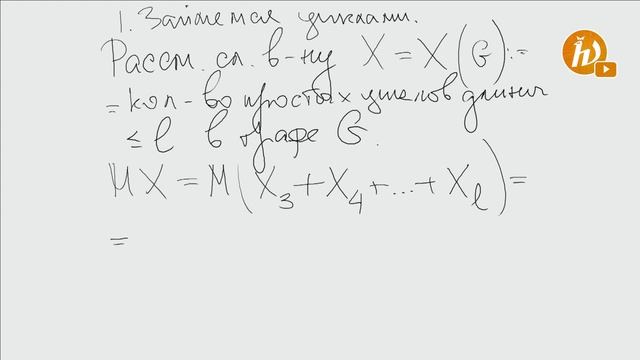 1. Займемся циклами.
Рассм. сл. в-ну X = X(G) :=
= кол-во простых циклов длины
≤ l в графе G.
MX = M(X₃ + X₄ + ... + Xₗ) =
=